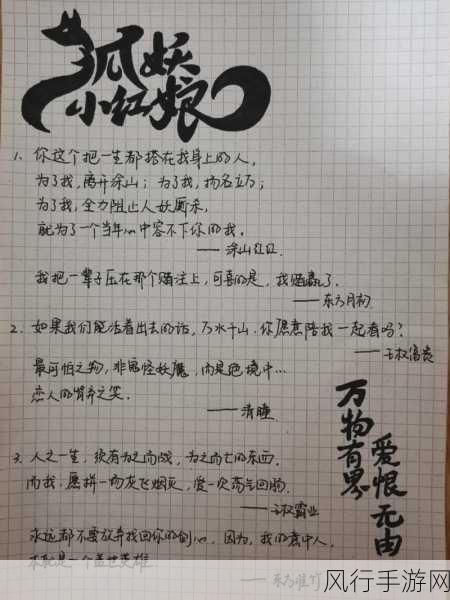 狐妖
小红娘
1. 你这个把一生都搭在我身上的人，
为了我，离开涂山；为了我，扬名立万；
为了我，全力阻止人妖厮杀，
就为了一个当年心中容不下你的我。
——涂山红红
我把一辈子压在那个赌注上，可喜的是，我赌赢了。
——东方月初
2. 如果我们能活着出去的话，万水千山，你愿意陪我一起看吗？
——王权富贵
最可怕之物，非鬼怪妖魔，而是绝境中…
恋人的背弃之笑。
——清瞳
3. 人之一生，须有为之而战，为之而亡的东西。
而我：愿拼一场灰飞烟灭，爱一次荡气回肠。
——王权霸业
永远都不要放弃找回你的剑心，因为，我的意中人，
本就是一个盖世英雄
——东方淮竹
万物有界
爱恨无由
风行手游网